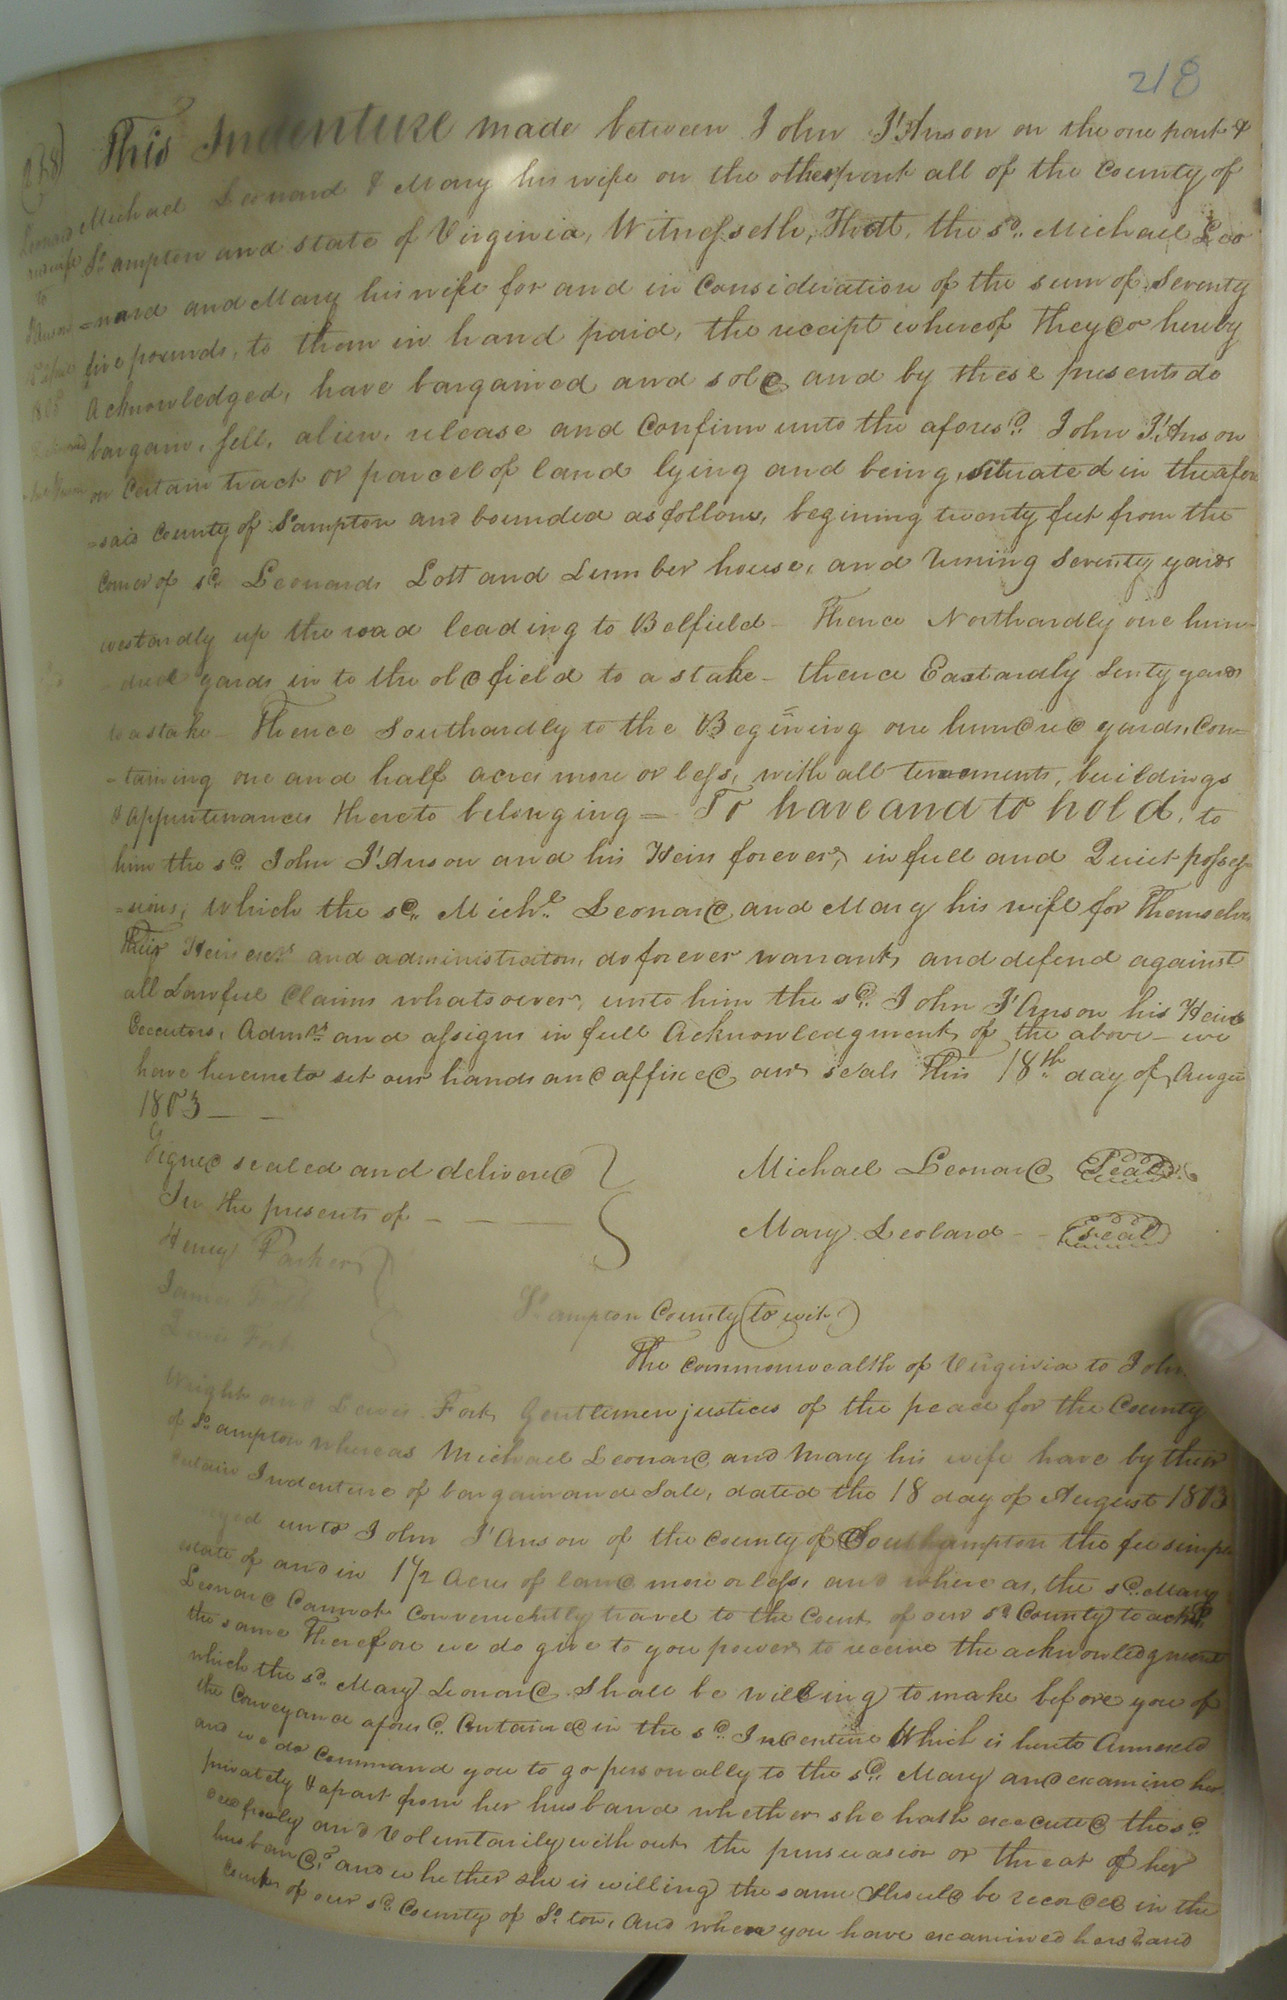 218
This Indenture made between John I'Anson on the one part &
Michael Leonard & Mary his wife on the other part all of the County of
So. ampton and state of Virginia, Witnesseth, That, the sd. Michael Leo
=nard and Mary his wife for and in Consideration of the sum of Seventy
five pounds, to them in hand paid, the receipt whereof they do hereby
Acknowledged, have bargained and sold and by these presents do
bargain, sell, alien, release and Confirm unto the aforesd. John I'Anson
on Certain tract or parcel of land lying and being, situated in the afore
=said County of So.ampton and bounded as follows, begining twenty feet from the
Corner of sd. Leonards Lott and Lumber house, and runing Seventy yards
westardly up the road leading to Belfield - Thence Northardly one hun-
-dred yards in to the old field to a stake - thence Eastardly Senty yards
to a stake - Thence Southardly to the Begining one hundred yards, Con-
-taining one and half acres more or less, with all tenements, buildings
& appurtenances thereto belonging = To have and to hold, to
him the sd. John I'Anson and his Heirs forever, in full and Quiet posses-
=sions, which the sd. Michl. Leonard and Mary his wife for Themselves
their Heirs exrs and administrators, do forever warrant, and defend against
all Lawful Claims whatsoever, unto him the sd. John I'Anson his Heirs
Executors, Admrs. and assigns in full Acknowledgment of the above - we
have hereunto set our hands and affixed our seals This 18th day of Augu
1803 - -
Signed sealed and delivered
In the presents of - - -
Michael Leonard Seal
Mary Leolard - - Seal
Henry Parker
James
Lewis Fort
So. ampton County (to wit)
The commonwealth of Virginia to John
Wright and Lewis Fort, Gentlemen justices of the peace for the County
of So. ampton whereas Michael Leonard and Mary his wife have by their
certain Indenture of bargain and Sale, dated the 18 day of August 1803
unto John I'Anson of the County of Southampton the fee simple
estate of and in 1 1/2 Acres of land more or less, and where as, the sd. Mary
Leonard Cannot Conveniently travel to the Court of our sd County to
the same Therefore we do give to you power to receive the acknowledgment
which the sd. Mary Leonard Shall be willing to make before you of
the Conveyance aforesd. Contained in the sd. Indenture Which is hereto Annexed
and we do Command you to go personally to the sd. Mary and examine her
privately & apart from her husband whether she hath executed the sd.
deed freely and Voluntarily without the persuasion or threat of her
husband, and whether she is willing the same should be recorded in the
Court of our sd. County of So. ton, And when you have examined her and